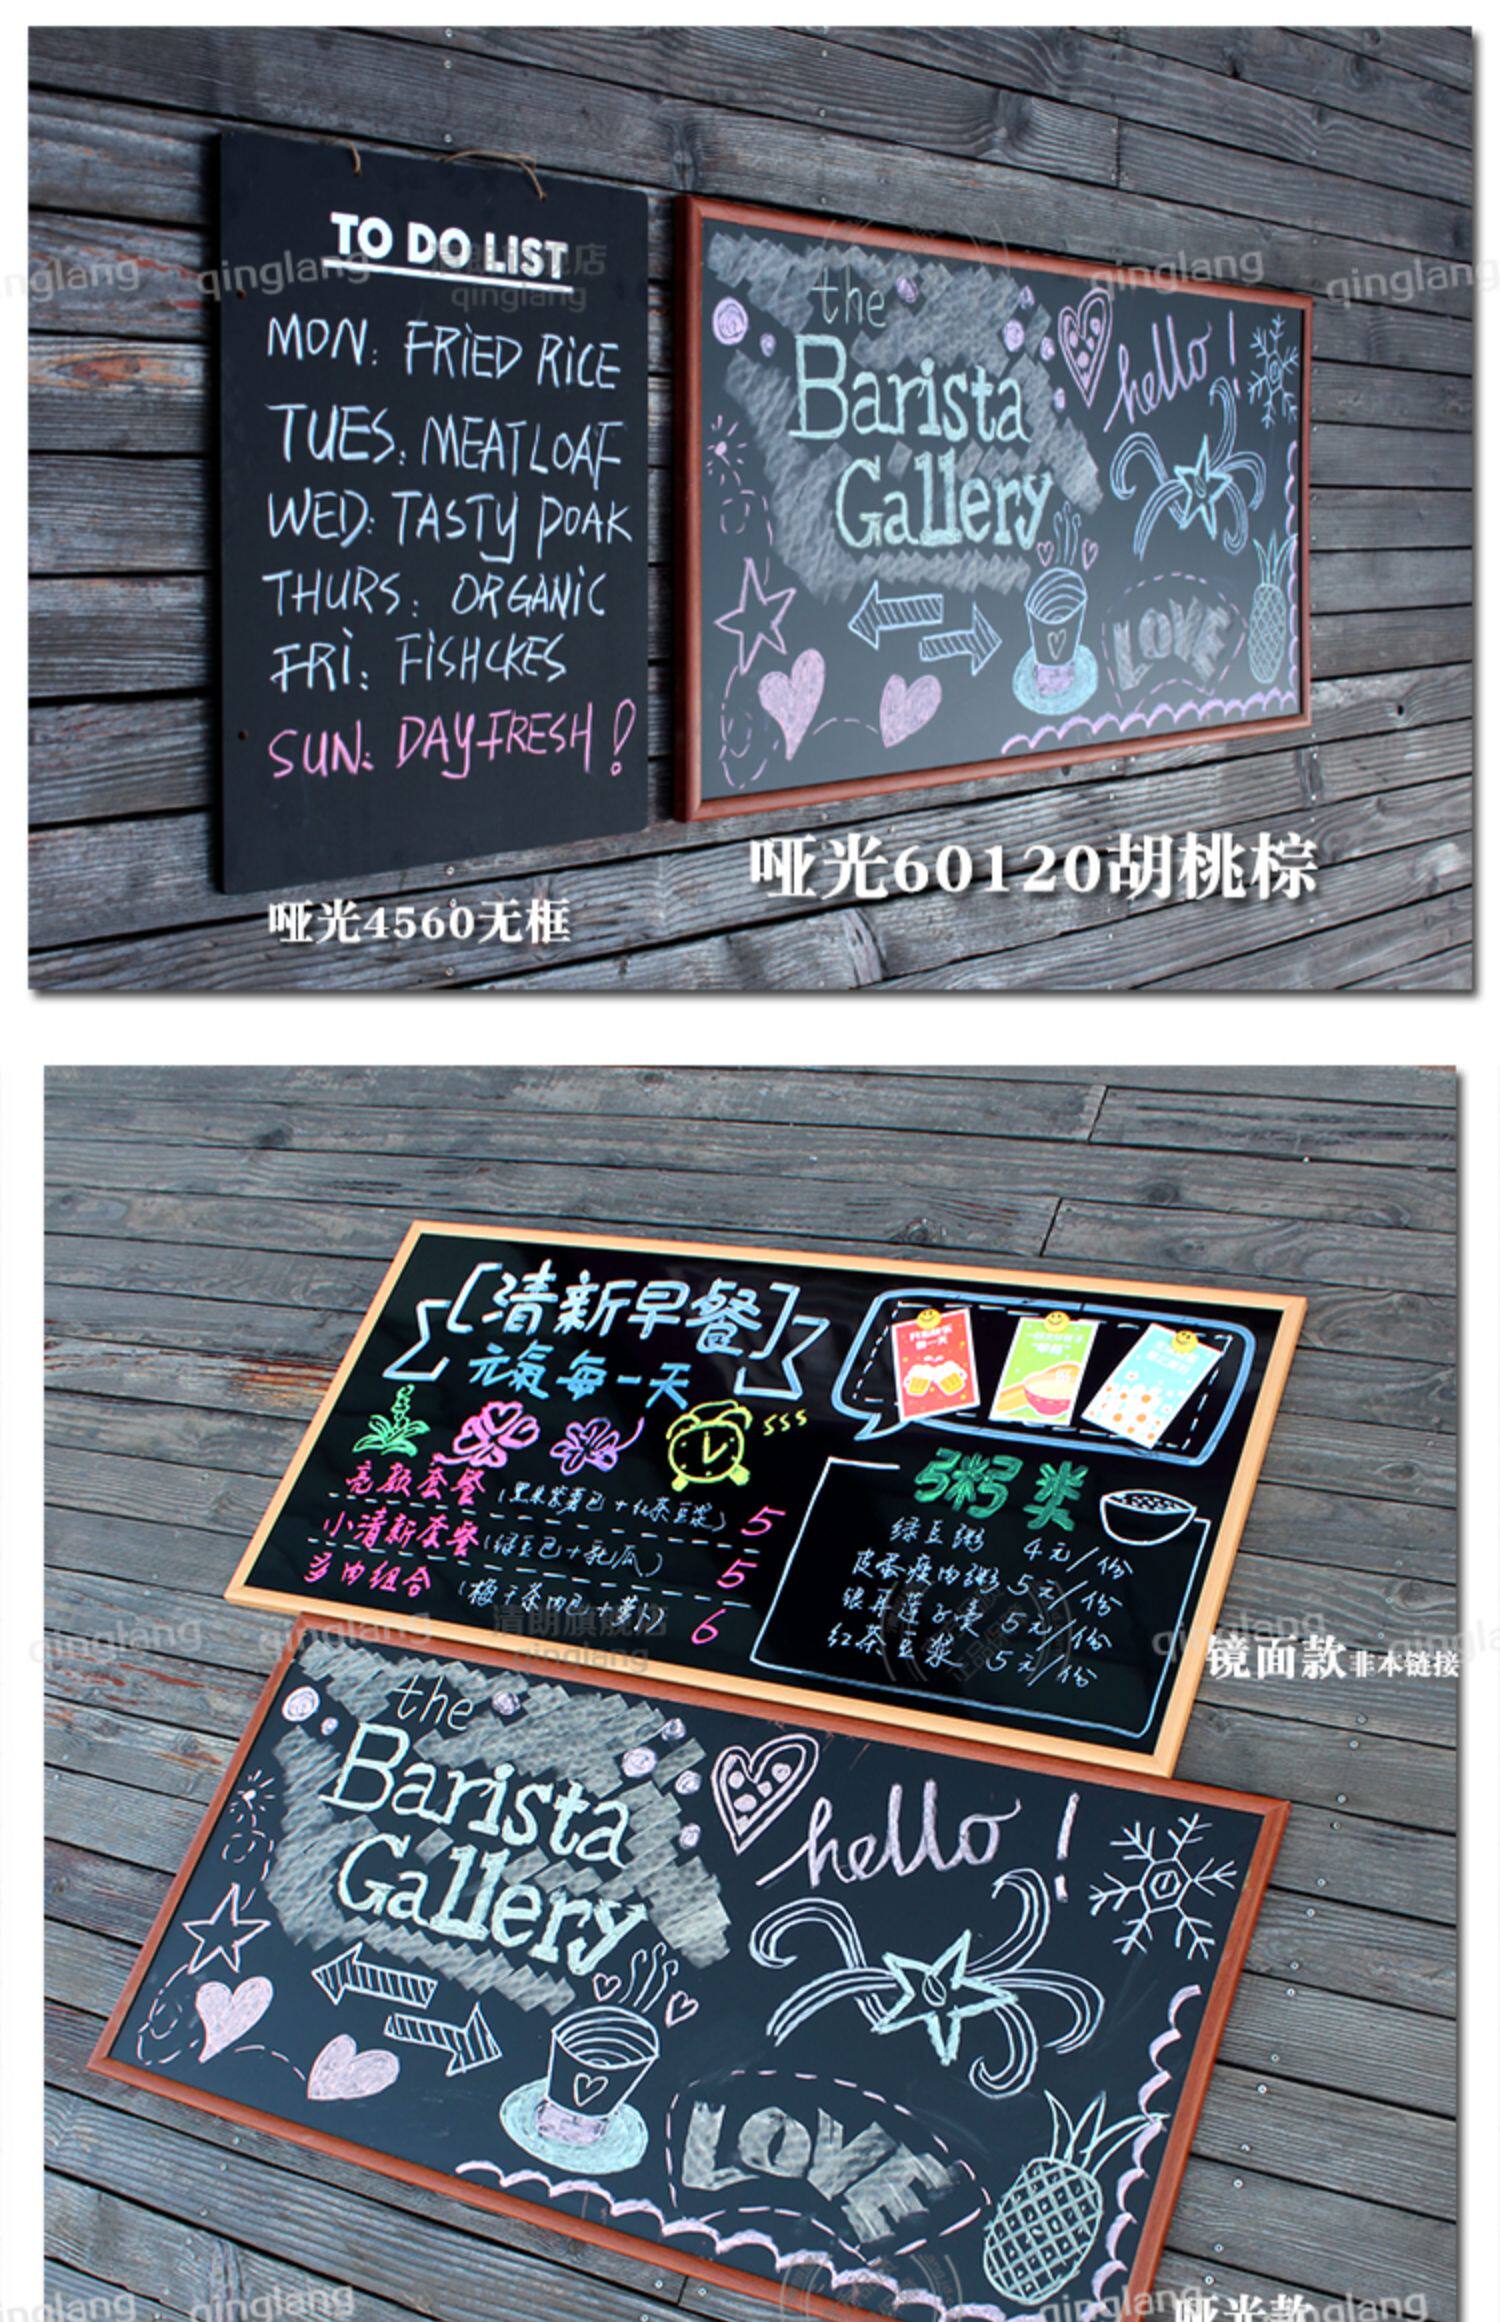 TO DO LIST
MON: FRIED RICE
TUES: MEATLOAF
WED: TASTY POAK
THURS: ORGANIC
FRI: FISHCKES
SUN: DAYFRESH!
the
Barista
Gallery
hello!
LOVE
哑光4560无框
哑光60120胡桃棕
qinglang
qinglang
qinglang
qinglang
[清新早餐]
元氣每一天
sss
亮颜套餐(黑米紫薯包+红茶豆浆) 5
小清新套餐(绿豆包+乳瓜) 5
多肉组合(梅干菜肉包+萝卜) 6
粥类
绿豆粥 4元/份
皮蛋瘦肉粥 5元/份
银耳莲子羹 5元/份
红茶豆浆 5元/份
清朗旗舰店
qinglang
qinglang
qinglang
镜面款非本链接
the
Barista
Gallery
hello!
LOVE
哑光款
qinglang
qinglang
qinglang